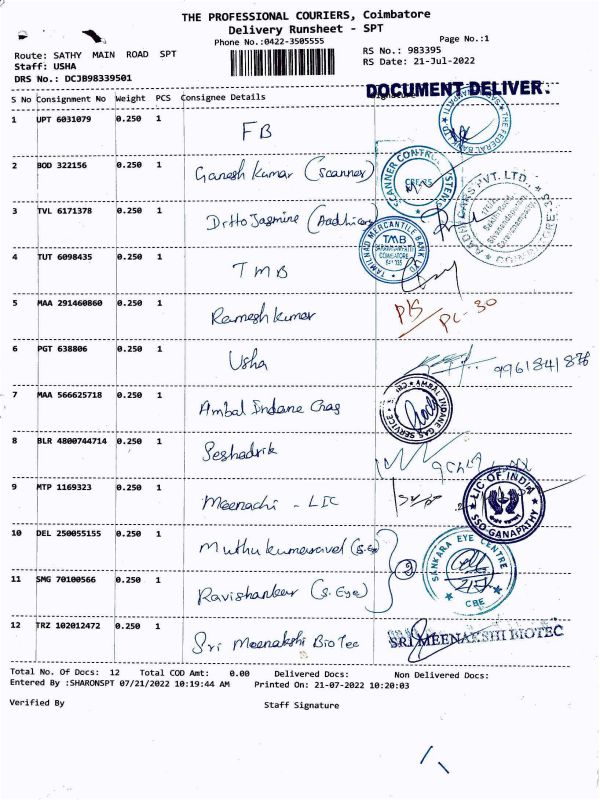 THE PROFESSIONAL COURIERS, Coimbatore
Delivery Runsheet - SPT
Phone No.:0422-3505555
Page No.:1
Route: SATHY MAIN ROAD SPT
RS No.: 983395
Staff: USHA
RS Date: 21-Jul-2022
DRS No.: DCJB98339501
DOCUMENT DELIVER.
S No Consignment No Weight PCS Consignee Details Signature
1 UPT 6031079 0.250 1 FB
THE FEDERAL BANK LTD
2 BOD 322156 0.250 1 Ganesh Kumar (Scanner)
SCANNER CONTROL SYSTEMS
3 TVL 6171378 0.250 1 Jasmine
PVT. LTD.,
4 TUT 6098435 0.250 1 TMB
TAMILNAD MERCANTILE BANK LTD
TMB
COIMBATORE
5 MAA 291460860 0.250 1 Ramesh Kumar
PC-30
6 PGT 638806 0.250 1 Usha
7 MAA 566625718 0.250 1 Ambal Indane Gas
AMBAL INDANE GAS SERVICE
8 BLR 4800744714 0.250 1 Seshadrik
9 MTP 1169323 0.250 1 Meenachi - LIC
LIC OF INDIA
SSO-GANAPATHY
10 DEL 250055155 0.250 1 Muthukumaravel (S.Eye
11 SMG 70100566 0.250 1 Ravishanker (S. Eye)
2
SANKARA EYE CENTRE
CBE
12 TRZ 102012472 0.250 1 Sri Meenakshi BioTec
SRI MEENAKSHI BIOTEC
Total No. Of Docs: 12 Total COD Amt: 0.00 Delivered Docs: Non Delivered Docs:
Entered By :SHARONSPT 07/21/2022 10:19:44 AM Printed On: 21-07-2022 10:20:03
Verified By Staff Signature